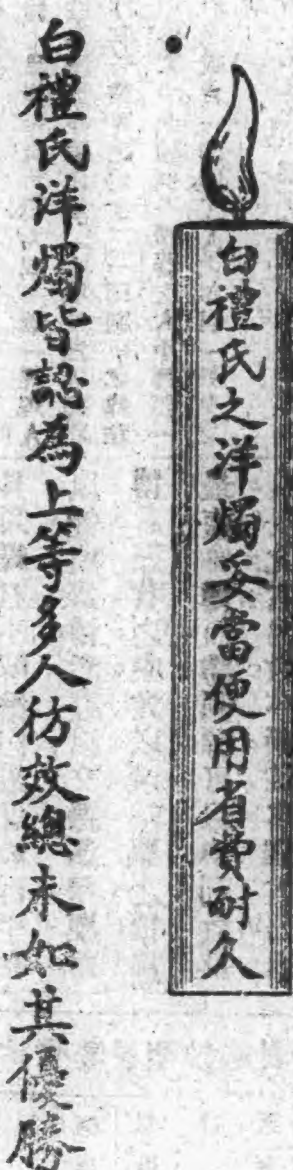 白禮氏之洋燭妥當便用省費耐久
白禮氏洋燭皆認為上等多人仿效總未如其優勝